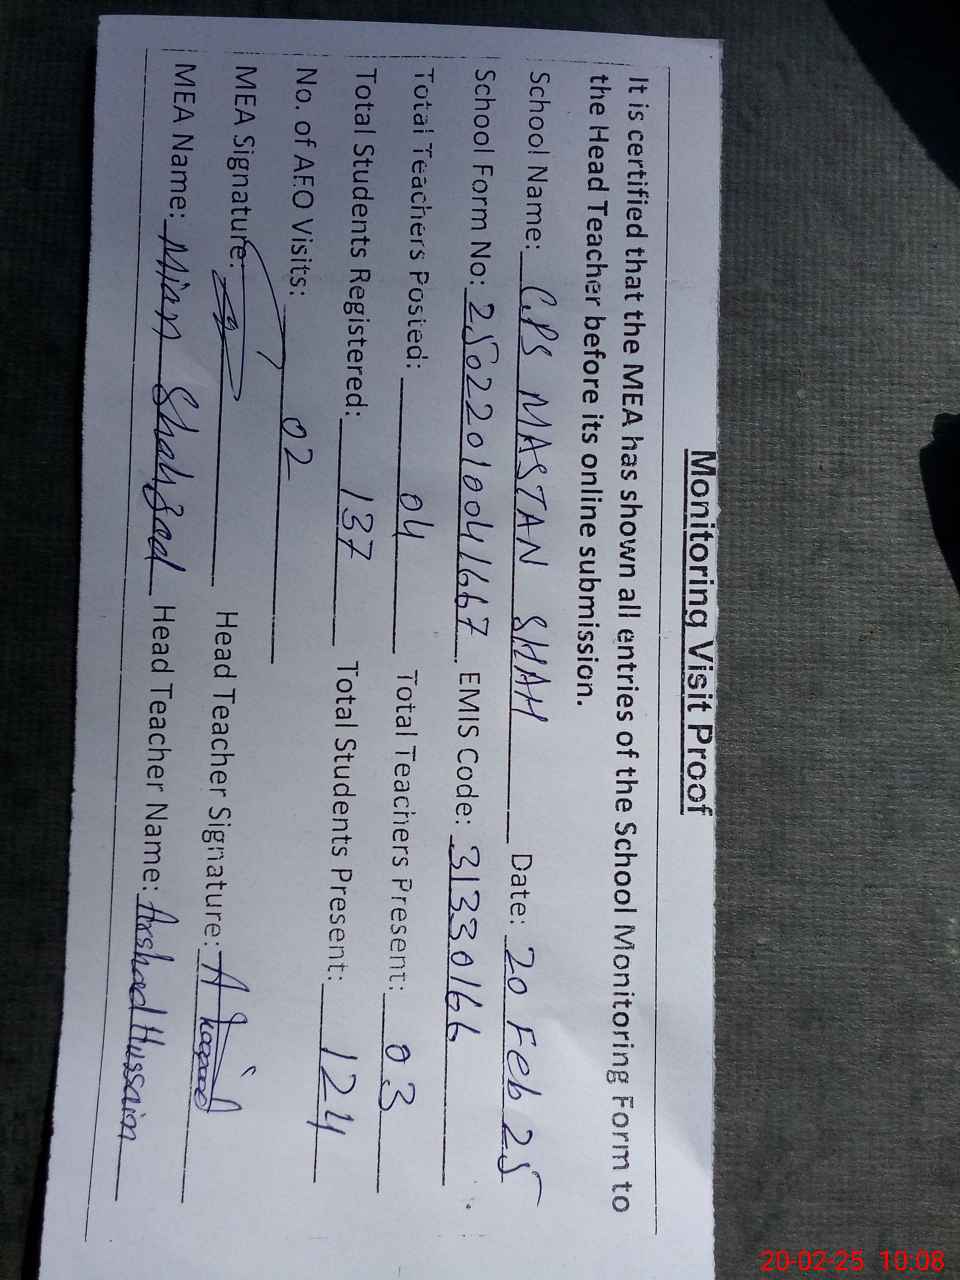 Monitoring Visit Proof
It is certified that the MEA has shown all entries of the School Monitoring Form to
the Head Teacher before its online submission.
School Name: G.PS MASTAN SHAH Date: 20 Feb 25
School Form No: 25022010041667 EMIS Code: 31330166
Total Teachers Posted: 04 Total Teachers Present: 03
Total Students Registered: 137 Total Students Present: 124
No. of AEO Visits: 02
MEA Signature: Head Teacher Signature:
MEA Name: Mian Shahzad Head Teacher Name: Arshad Hussain
20-02-25 10:08